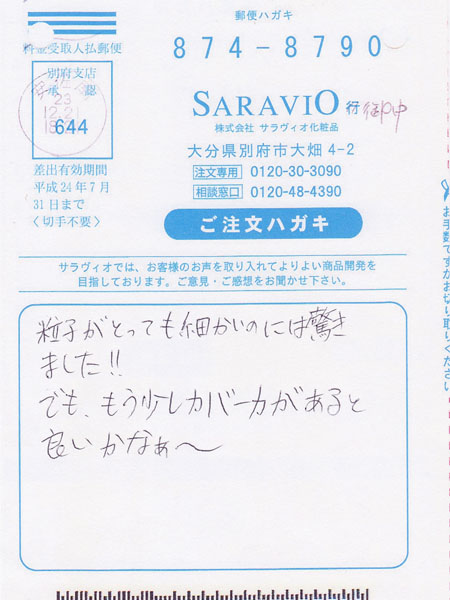 郵便ハガキ
料金受取人払郵便
874-8790
別府支店
承認
644
23
12.21
差出有効期間
平成24年7月
31日まで
〈切手不要〉
SARAVIO 行 御中
株式会社 サラヴィオ化粧品
大分県別府市大畑 4-2
注文専用 0120-30-3090
相談窓口 0120-48-4390
ご注文ハガキ
サラヴィオでは、お客様のお声を取り入れてよりよい商品開発を
目指しております。ご意見・ご感想をお聞かせ下さい。
粒子がとっても細かいのには驚き
ました!!
でも、もう少しカバー力があると
良いかなぁ〜
お手数ですがお切り取りください